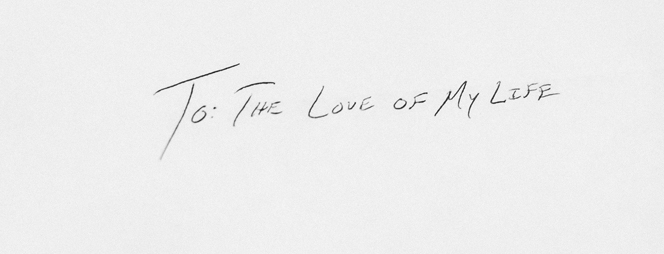 To: The Love of My Life